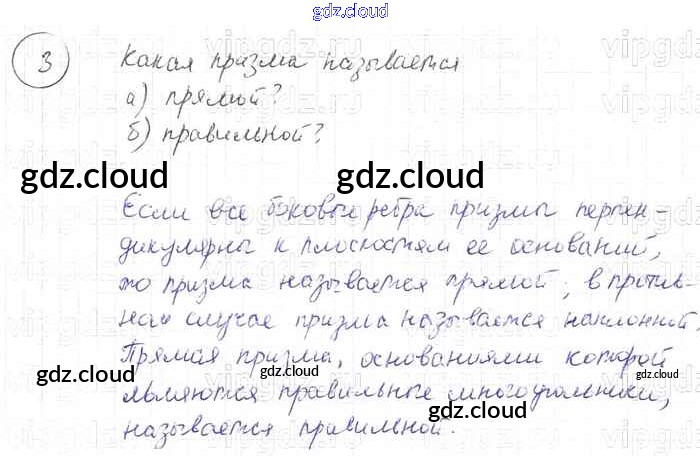 gdz.cloud
3 Какая призма называется
а) прямой?
б) правильной?
gdz.cloud gdz.cloud
Если все боковые ребра призмы перпен-
дикулярны к плоскостям ее оснований,
то призма называется прямой, в против-
ном случае призма называется наклонной.
Прямая призма, основаниями которой
gdz.cloud gdz.cloud
являются правильные многоугольники,
gdz.cloud
называется правильной.